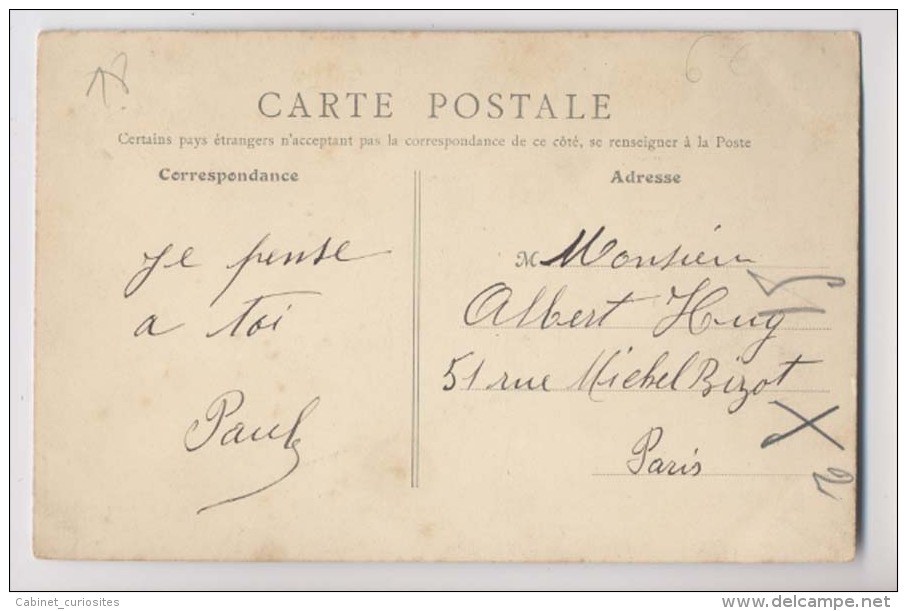 CARTE POSTALE
Certains pays étrangers n'acceptant pas la correspondance de ce côté, se renseigner à la Poste
Correspondance
Adresse
Je pense
a toi
Paul
M Monsieur
Albert Hug
51 rue Michel Bizot
Paris
Cabinet_curiosites
http://www.delcampe.net